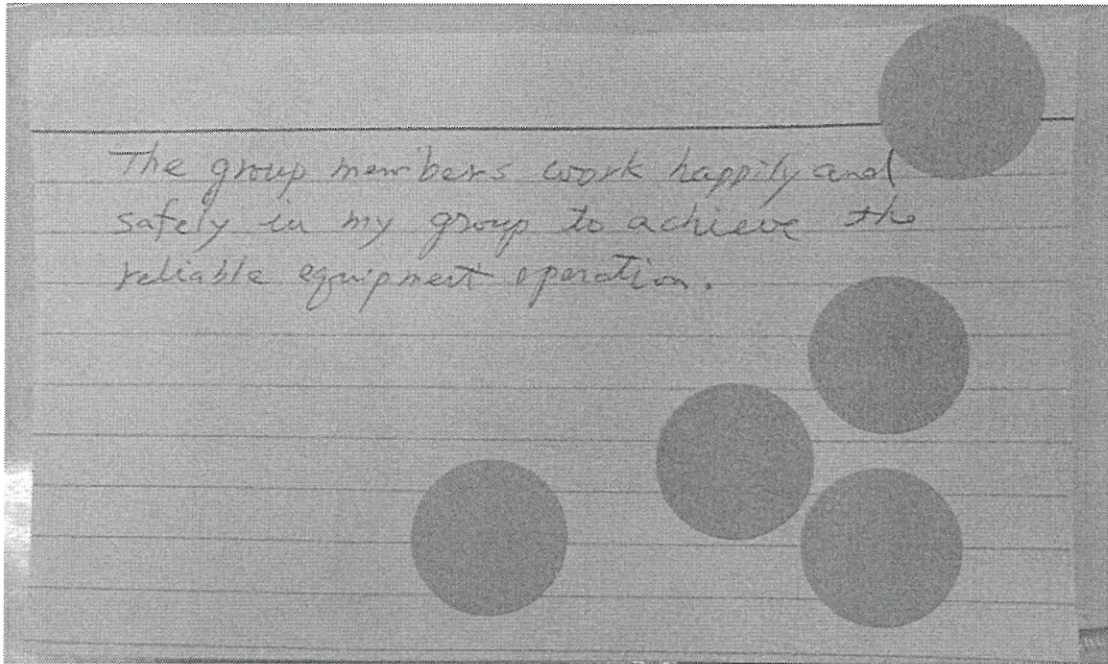 The group members work happily and
safely in my group to achieve the
reliable equipment operation.